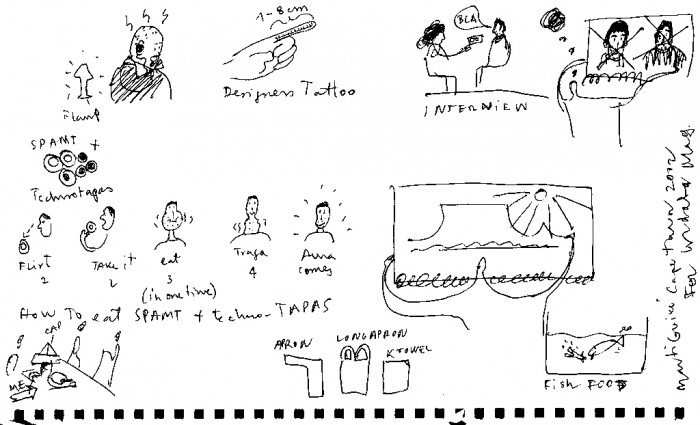 1-8cm
Designers Tattoo
BLA
INTERVIEW
SPAMT +
Technotapas
Flirt
1
TAKE it
2
eat
3
(in one time)
Traga
4
Aura
comes
HOW TO eat SPAMT + techno-TAPAS
CAP
ME
APRON
LONG APRON
K TOWEL
FISH FOOD
Marti Guixé Cape Town 2012
For Indaba Mag.